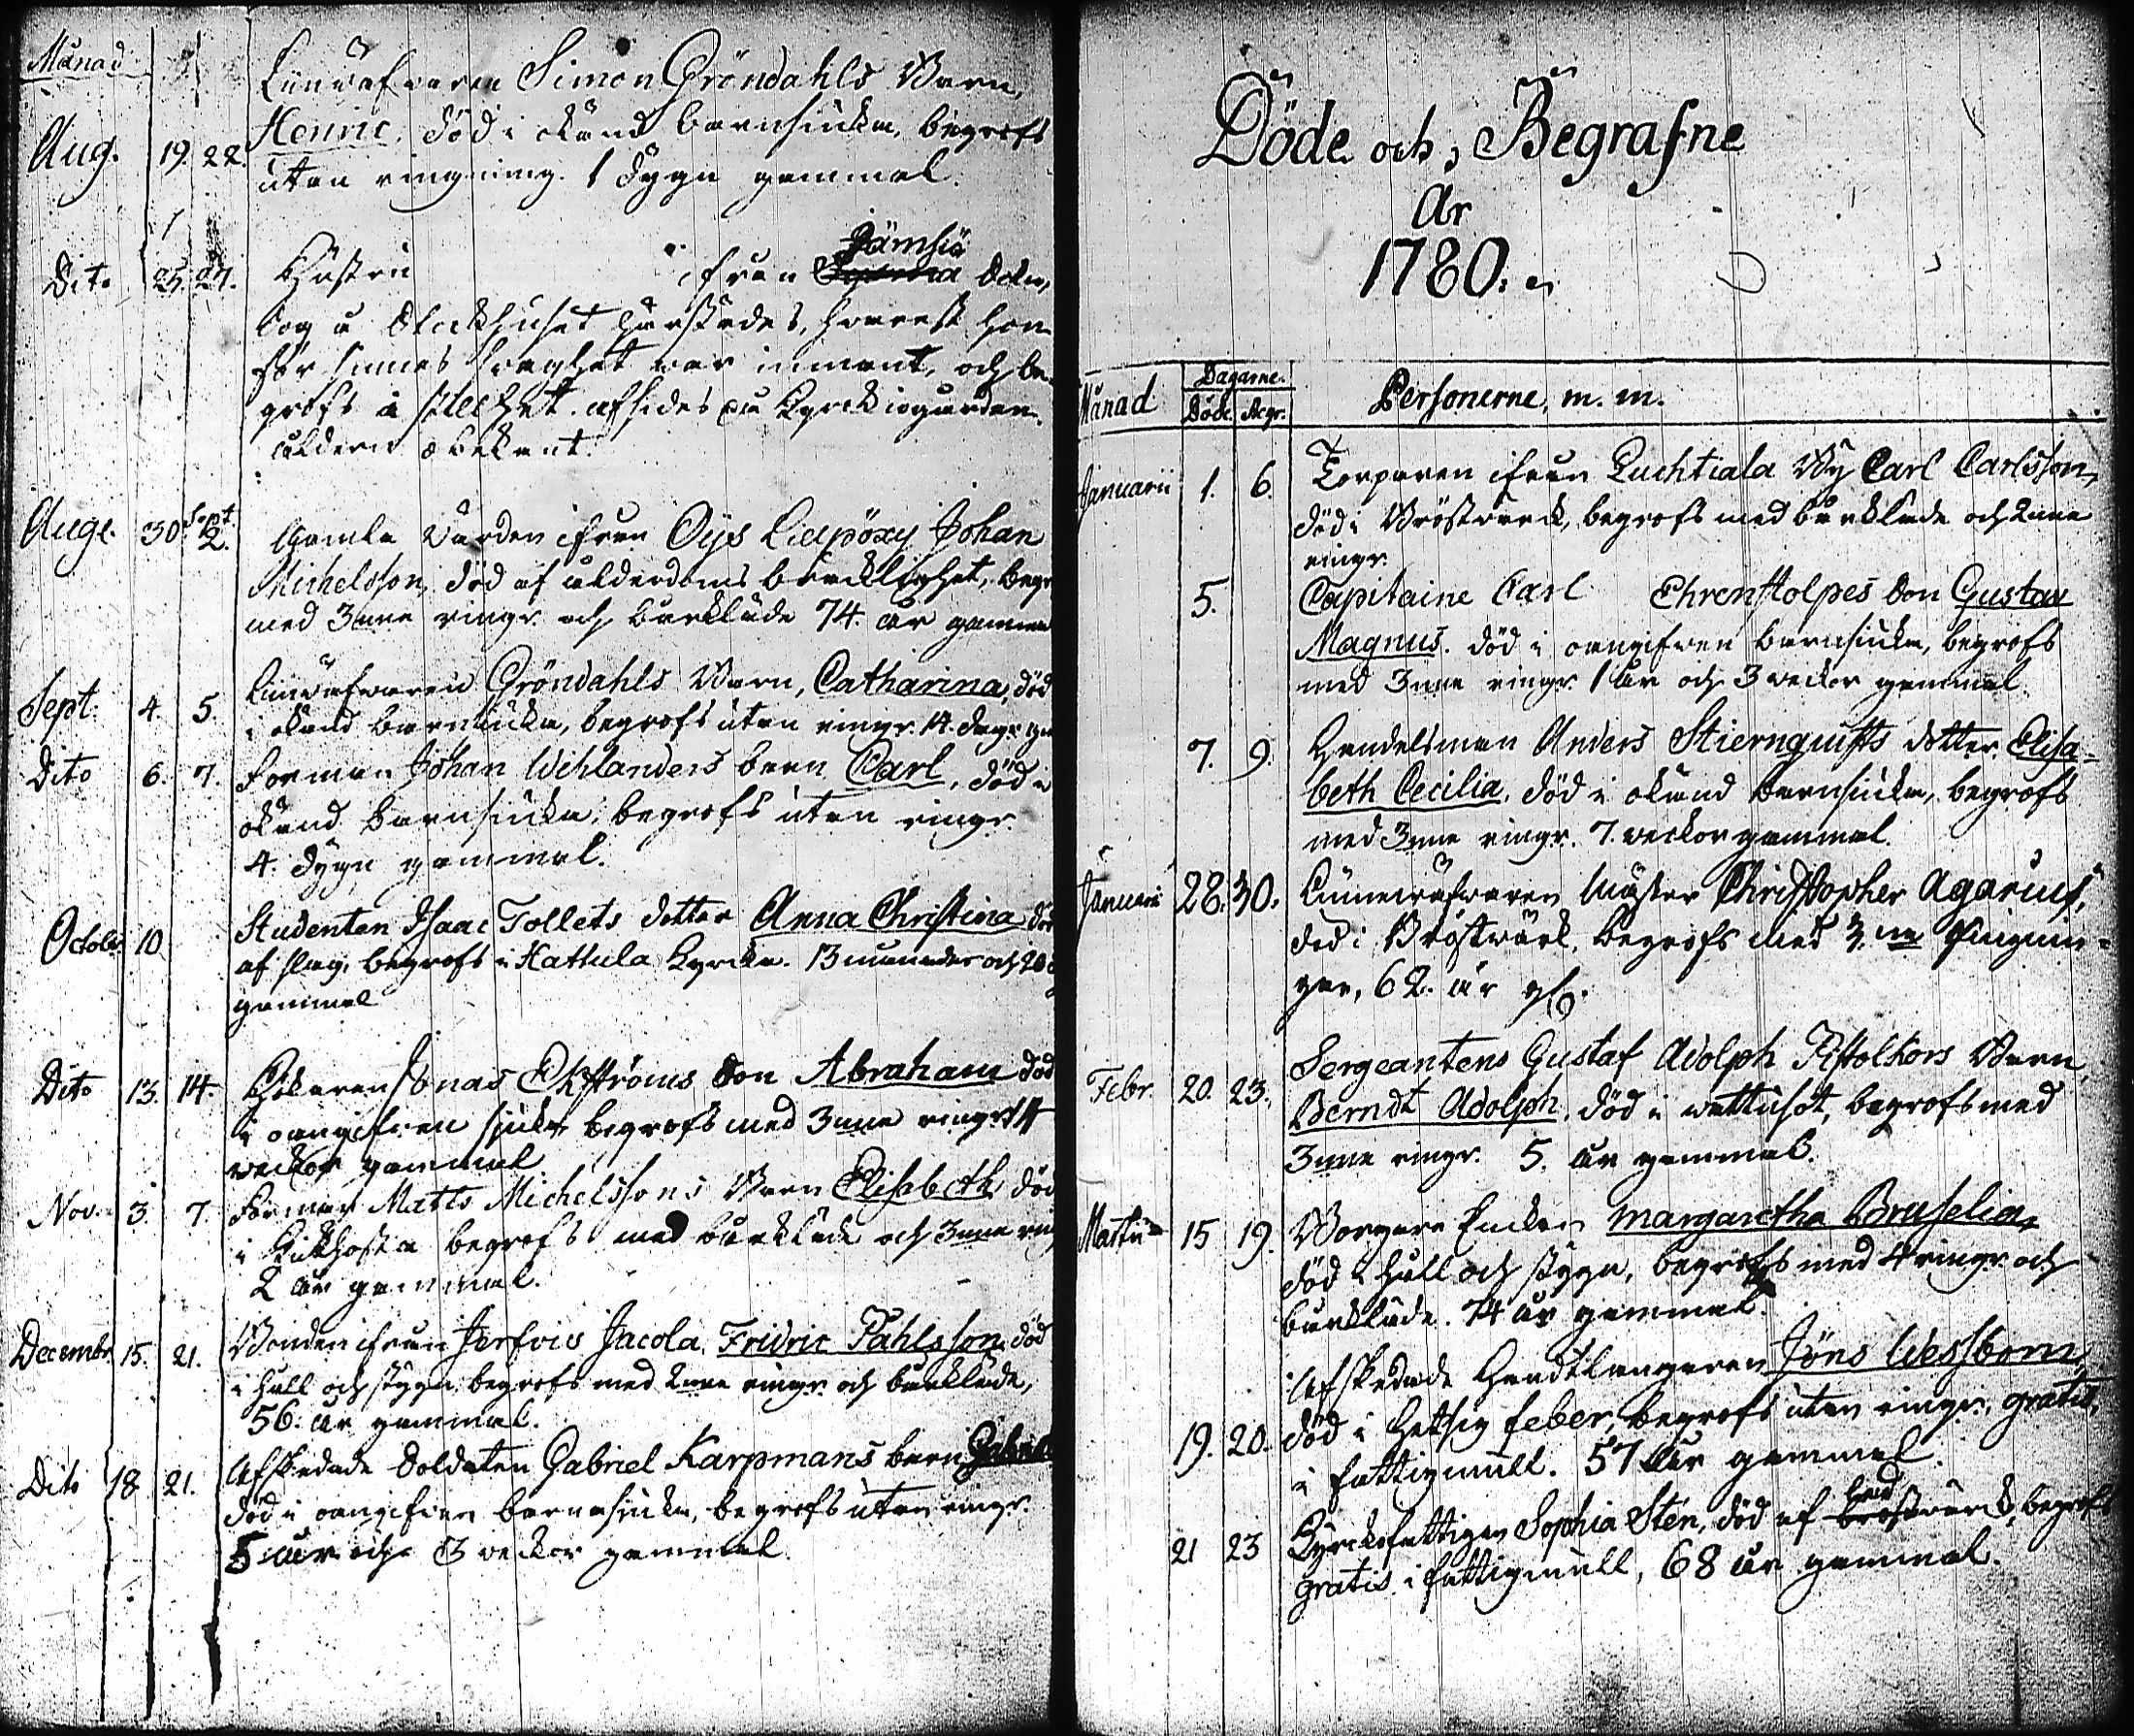 Månad
Linwäfvaren Simon Gröndahls Barn,
Aug. 19. 22. Henric, död i okänd barnsiuka, begrofs
utan ringning. 1 dygn gammal.
Dito 25. 27. Hustru ifrån Jämsiö Sokn,
tog å härstädes, hwarest hon
för sinnes swaghet war intagen, och be-
grofs i stillhet afsides på Kyrckiogården.
åldern obekant.
Aug. 30 Sept. 2. Gamla Bonden ifrån Öijs Johan
Michelsson, död af ålderdoms bräcklighet, begr.
med 3nne ringr. och bårkläde 74. år gammal
Sept. 4. 5. Linwäfvaren Gröndahls Barn, Catharina, död
i okänd barnsiuka, begrofs utan ringr. 14 dagr
Dito 6. 7. Forman Johan Wihlanders barn Carl, död i
okänd barnsiuka, begrofs utan ringr.
4. dygn gammal.
Octobr. 10 Studenten Isaac Tollets dotter Anna Christina död
af slag, begrofs i Hattula Kyrcka. 13 månader och 20
gammal
Dito 13. 14. Jonas Ekströms Son Abraham död
i oangifven siuka begrofs med 3nne ringr. 14
weckor gammal.
Nov. 3. 7. Forman Matts Michelssons Barn Elisabeth död
i Kikhosta begrofs med bårkläde och 3nne ring
2 år gammal.
Decembr. 15. 21. Bonden ifrån Jerfvis Jacola, Fridric Påhlsson, död
i håll och stygn, begrofs med 2nne ringr. och bårkläde,
56. år gammal.
Dito 18 21. Afskedade Soldaten Gabriel Karpmans barn Gabriel
död i oangifven barnasiuka, begrofs utan ringr.
5 år och 3 weckor gammal.
Döde och Begrafne
År
1780.
Månad Dagarne. Personerne, m. m.
Döde. Begr.
Januarii 1. 6. Torparen ifrån Luchtiala By Carl Carlsson,
död i Bröstwerck, begrofs med bårkläde och 2nne
ringr.
5. Capitaine Carl Ehrenstolpes Son Gustav
Magnus. död i oangifven barnsiuka, begrofs
med 3nne ringr. 1 år och 3 weckor gammal.
7. 9. Handelsman Anders Stiernquists dotter Elisa-
beth Cecilia, död i okänd barnsiuka, begrofs
med 3nne ringr. 7. weckor gammal.
Januarii 28. 30. Linnewäfvaren Mäster Christopher Agarius,
död i Bröstwärk, begrofs med 3.ne Ringnin-
gar, 62. år
Febr. 20. 23. Sergeantens Gustaf Adolph Pistolkors Barn,
Berndt Adolph, död i wattusot, begrofs med
3nne ringr. 5. år gammal.
Martii 15 19. Borgare Enckan Margaretha Bruselia,
död i håll och stygn, begrofs med 4 ringr. och
bårkläde. 74 år gammal.
Afskedade Handtlangaren Jöns Wessbom,
19. 20. död i hetsig feber, begrofs utan ringr. gratis,
i fattigmull. 57 år gammal.
21 23 Kyrckofattigen Sophia Sten, död af bröstwärck, begrofs
gratis i fattigmull, 68 år gammal.